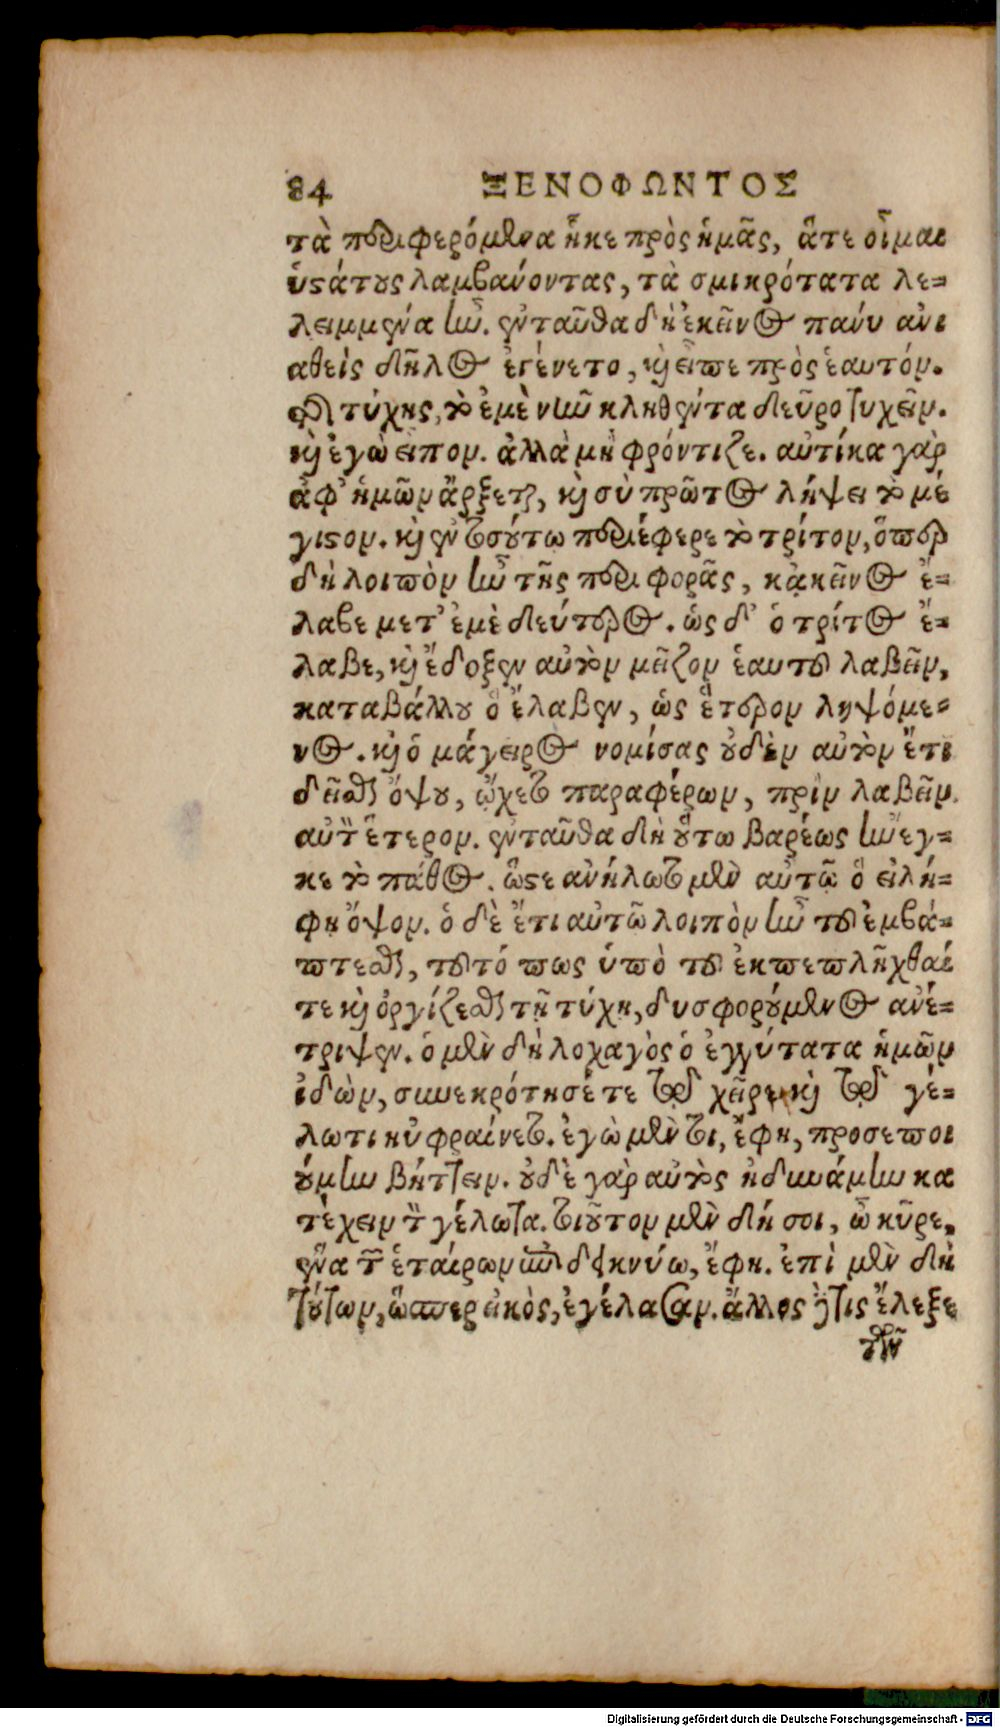 84 ΞΕΝΟΦΩΝΤΟΣ
τὰ περιφερόμενα ἧκε πρὸς ἡμᾶς, ἅτε οἶμαι
ὑστάτους λαμβάνοντας, τὰ σμικρότατα λε-
λειμμένα ἦν. ἐνταῦθα δὴ ἐκεῖνος πάνυ ἀνι
αθεὶς δῆλος ἐγένετο, καὶ εἶπε πρὸς ἑαυτόν.
τῆς τύχης, τὸ ἐμὲ νῦν κληθέντα δεῦρο τυχεῖν.
καὶ ἐγὼ εἶπον. ἀλλὰ μὴ φρόντιζε. αὐτίκα γὰρ
ἀφ' ἡμῶν ἄρξεται, καὶ σὺ πρῶτος λήψει τὸ μέ
γιστον. καὶ ἐν τούτῳ περιέφερε τὸ τρίτον, ὅπερ
δὴ λοιπὸν ἦν τῆς περιφορᾶς, κἀκεῖνος ἔ-
λαβε μετ' ἐμὲ δεύτερος. ὡς δ' ὁ τρίτος ἔ-
λαβε, καὶ ἔδοξεν αὐτὸν μεῖζον ἑαυτοῦ λαβεῖν,
καταβάλλου ὃ ἔλαβεν, ὡς ἕτερον ληψόμε-
νος. καὶ ὁ μάγειρος νομίσας οὐδὲν αὐτὸν ἔτι
δεῖσθαι ὄψου, ᾤχετο παραφέρων, πρὶν λαβεῖν
αὐτὸν ἕτερον. ἐνταῦθα δὴ οὕτω βαρέως ἤνεγ-
κε τὸ πάθος. ὥστε ἀνήλωτο μὲν αὐτῷ ὃ εἰλή-
φη ὄψον. ὃ δὲ ἔτι αὐτῶ λοιπὸν ἦν τοῦ ἐμβά-
πτεσθαι, τοῦτό πως ὑπὸ τοῦ ἐκπεπλῆχθαί
τε καὶ ὀργίζεσθαι τῇ τύχῃ, δυσφορούμενος ἀνέ-
τριψεν. ὁ μὲν δὴ λοχαγὸς ὁ ἐγγύτατα ἡμῶν
ἰδὼν, συνεκρότησέ τε τὼ χεῖρε καὶ τῷ γέ-
λωτι ηὐφραίνετο. ἐγὼ μέντοι, ἔφη, προσεποι
ούμην βήττειν. οὐδὲ γὰρ αὐτὸς ἠδυνάμην κα
τέχειν τὸν γέλωτα. τοιοῦτον μὲν δή σοι, ὦ κῦρε,
ἕνα τῶν ἑταίρων ἡμῶν δεικνύω, ἔφη. ἐπὶ μὲν δὴ
τούτων, ὥσπερ εἰκὸς, ἐγέλασαν. ἄλλος δέ τις ἔλεξε
τῶν
Digitalisierung gefördert durch die Deutsche Forschungsgemeinschaft - DFG